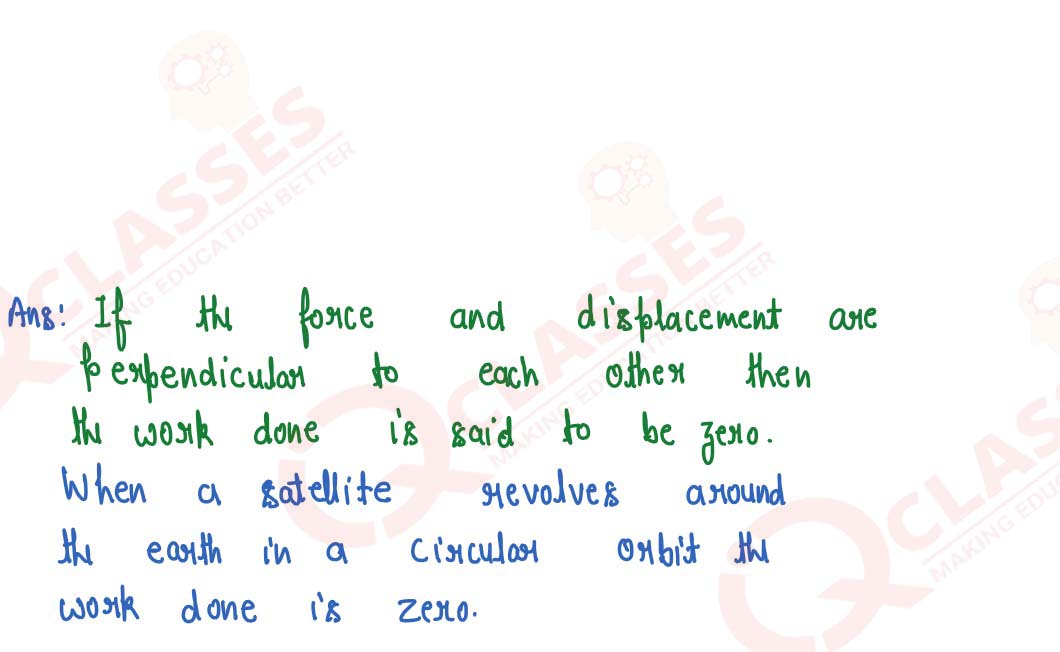 Ans: If the force and displacement are
perpendicular to each other then
the work done is said to be zero.
When a satellite revolves around
the earth in a circular orbit the
work done is zero.
CLASSES
MAKING EDUCATION BETTER
CLASSES
MAKING EDUCATION BETTER
CLASSES
MAKING EDUCA